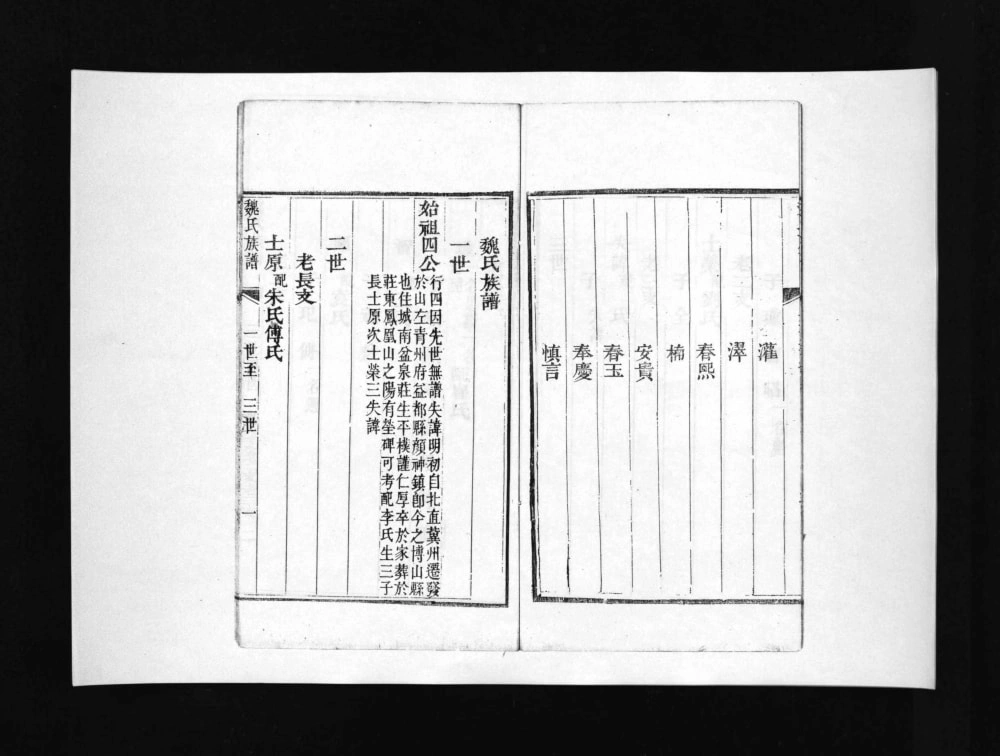 灌
澤
春熙
楠
安貴
春玉
奉慶
慎言
魏氏族譜
一世
始祖四公
行四因先世無譜失諱明初自北直冀州遷發
於山左青州府益都縣顔神鎮卽今之博山縣
也住城南盆泉莊生平樸謹仁厚卒於家葬於
莊東鳳凰山之陽有塋碑可考配李氏生三子
長士原次士榮三失諱
二世
老長支
士原配朱氏傅氏
魏氏族譜 一世至三世 一